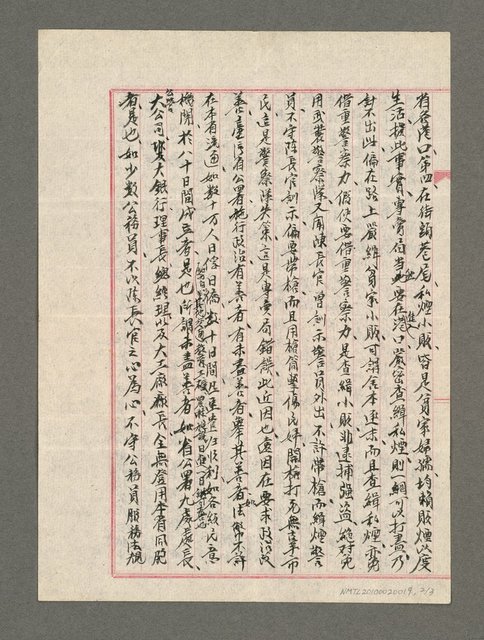 若各港口第四在街頭巷尾私煙小販皆是貧家婦孺均賴販煙以度
生活據此事實專賣局當要在港口嚴密查緝私煙則一網可以打盡乃
計不出此偏在路上嚴緝貧家小販可謂舍本逐末而且查緝私煙亦
借重警察力假使要借重警察力是查緝小販非逮捕強盜絕對免
用武裝警察隊又聞陳長官曾訓示警員外出不許帶槍而緝煙警
員不守陳長官訓示偏要帶槍而且用槍筒擊傷民婦開槍打死無辜市
民這是警察隊失策這是專賣局錯誤此近因也遠因在要求政治改
善臺灣省公署施行政治有善者有未盡善者舉其善者如法幣不許
在本省流通如數十萬人日俘日僑數十日間歸順利如各級民意
機關於八十日間成立者是也所謂未盡善者如省公署九處處長
大公司大銀行理事長總經理以及大工廠廠長全無登用本省同胞
者是也如少數公務員不以陳長官之心為心不守公務員服務法規
NMTL20100020019, 7/3